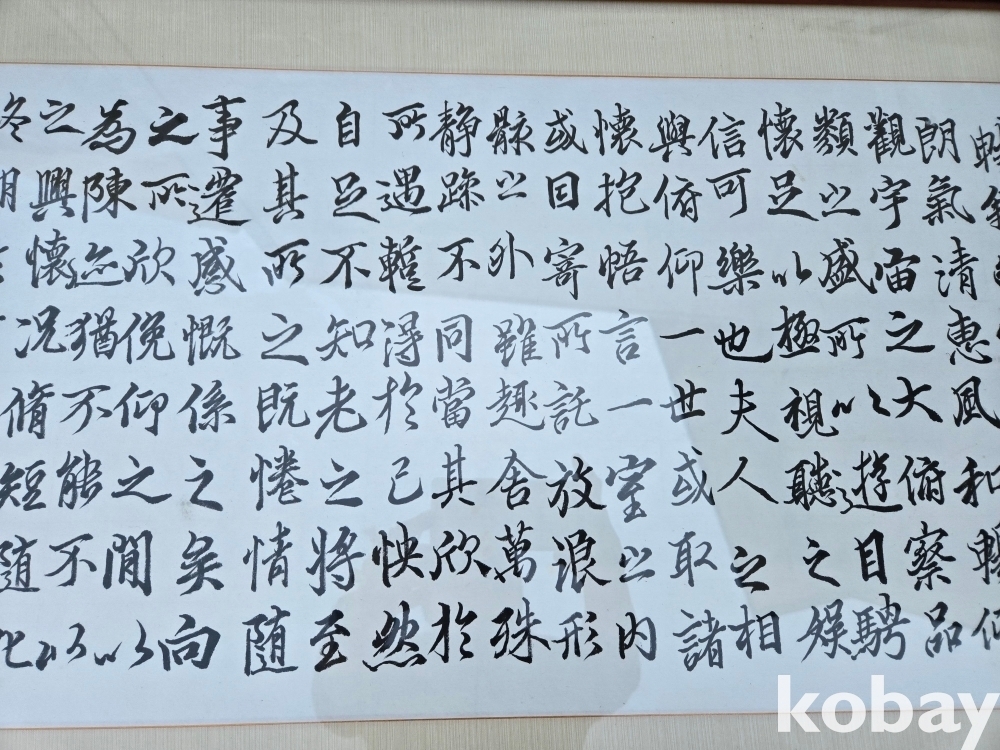 朗氣清惠風和暢仰
觀宇宙之大俯察品
類之盛所以遊目騁
懷足以極視聽之娛
信可樂也夫人之相
與俯仰一世或取諸
懷抱悟言一室之內
或因寄所託放浪形
骸之外雖趣舍萬殊
靜躁不同當其欣於
所遇蹔得於己怏然
自足不知老之將至
及其所之既惓情隨
事遷感慨係之矣向
之所欣俛仰之閒以
為陳迹猶不能不以
之興懷況脩短隨化
終期
kobay